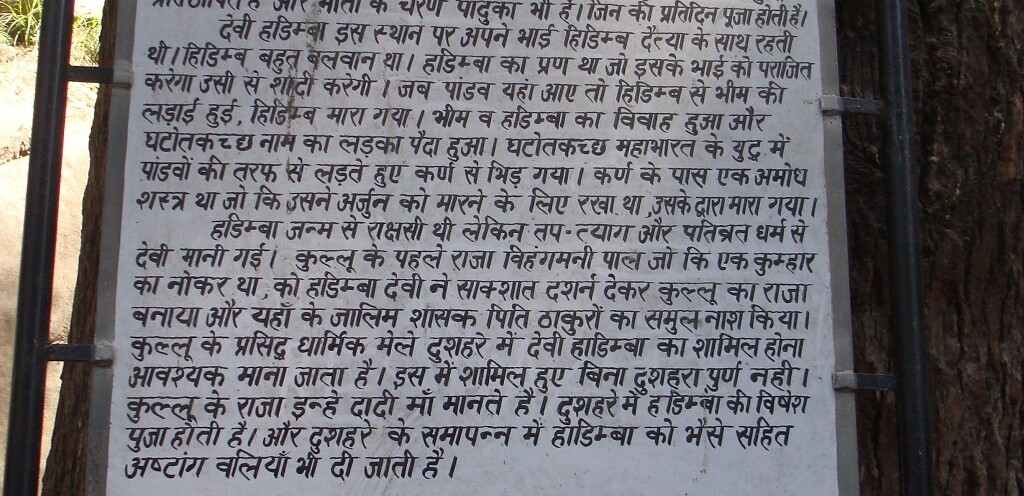 है और माता के चरण पादुका भी है। जिन की प्रतिदिन पुजा होती है।
देवी हडिम्बा इस स्थान पर अपने भाई हिडिम्ब दैत्या के साथ रहती
थी। हिडिम्ब बहुत बलवान था। हडिम्बा का प्रण था जो इसके भाई को पराजित
करेगा उसी से शादी करेगी। जब पांडव यहां आए तो हिडिम्ब से भीम की
लड़ाई हुई, हिडिम्ब मारा गया। भीम व हडिम्बा का विवाह हुआ और
घटोतकच्छ नाम का लड़का पैदा हुआ। घटोतकच्छ महाभारत के युद्व में
पांडवों की तरफ से लड़ते हुए कर्ण से भिड़ गया। कर्ण के पास एक अमोध
शस्त्र था जो कि उसने अर्जुन को मारने के लिए रखा था, उसके द्वारा मारा गया।
हडिम्बा जन्म से राक्षसी थी लेकिन तप-त्याग और पतिव्रत धर्म से
देवी मानी गई। कुल्लू के पहले राजा विहंगमनी पाल जो कि एक कुम्हार
का नोकर था, को हडिम्बा देवी ने साक्शात दर्शन देकर कुल्लू का राजा
बनाया और यहाँ के जालिम शासक पिति ठाकुरों का समुल नाश किया।
कुल्लू के प्रसिद्व धार्मिक मेले दुशहरे में देवी हाडिम्बा का शामिल होना
आवश्यक माना जाता है। इस में शामिल हुए बिना दुशहरा पुर्ण नही।
कुल्लू के राजा इन्हे दादी माँ मानते है। दुशहरे में हडिम्बा की विषेश
पुजा होती है। और दुशहरे के समापन्न में हाडिम्बा को भैसे सहित
अष्टांग बलियाँ भी दी जाती है।